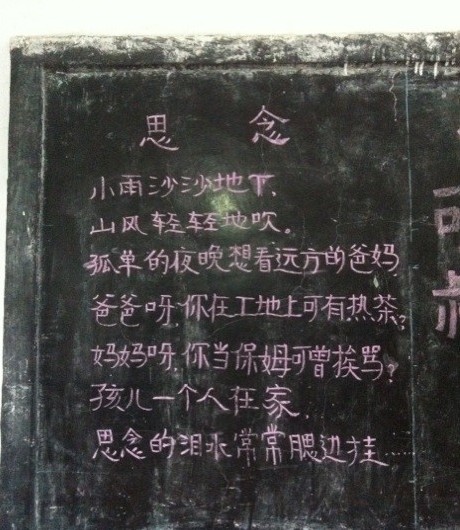 思 念
小雨沙沙地下、
山风轻轻地吹。
孤单的夜晚想着远方的爸妈
爸爸呀,你在工地上可有热茶?
妈妈呀,你当保姆可曾挨骂?
孩儿一个人在家...
思念的泪水常常腮边挂......